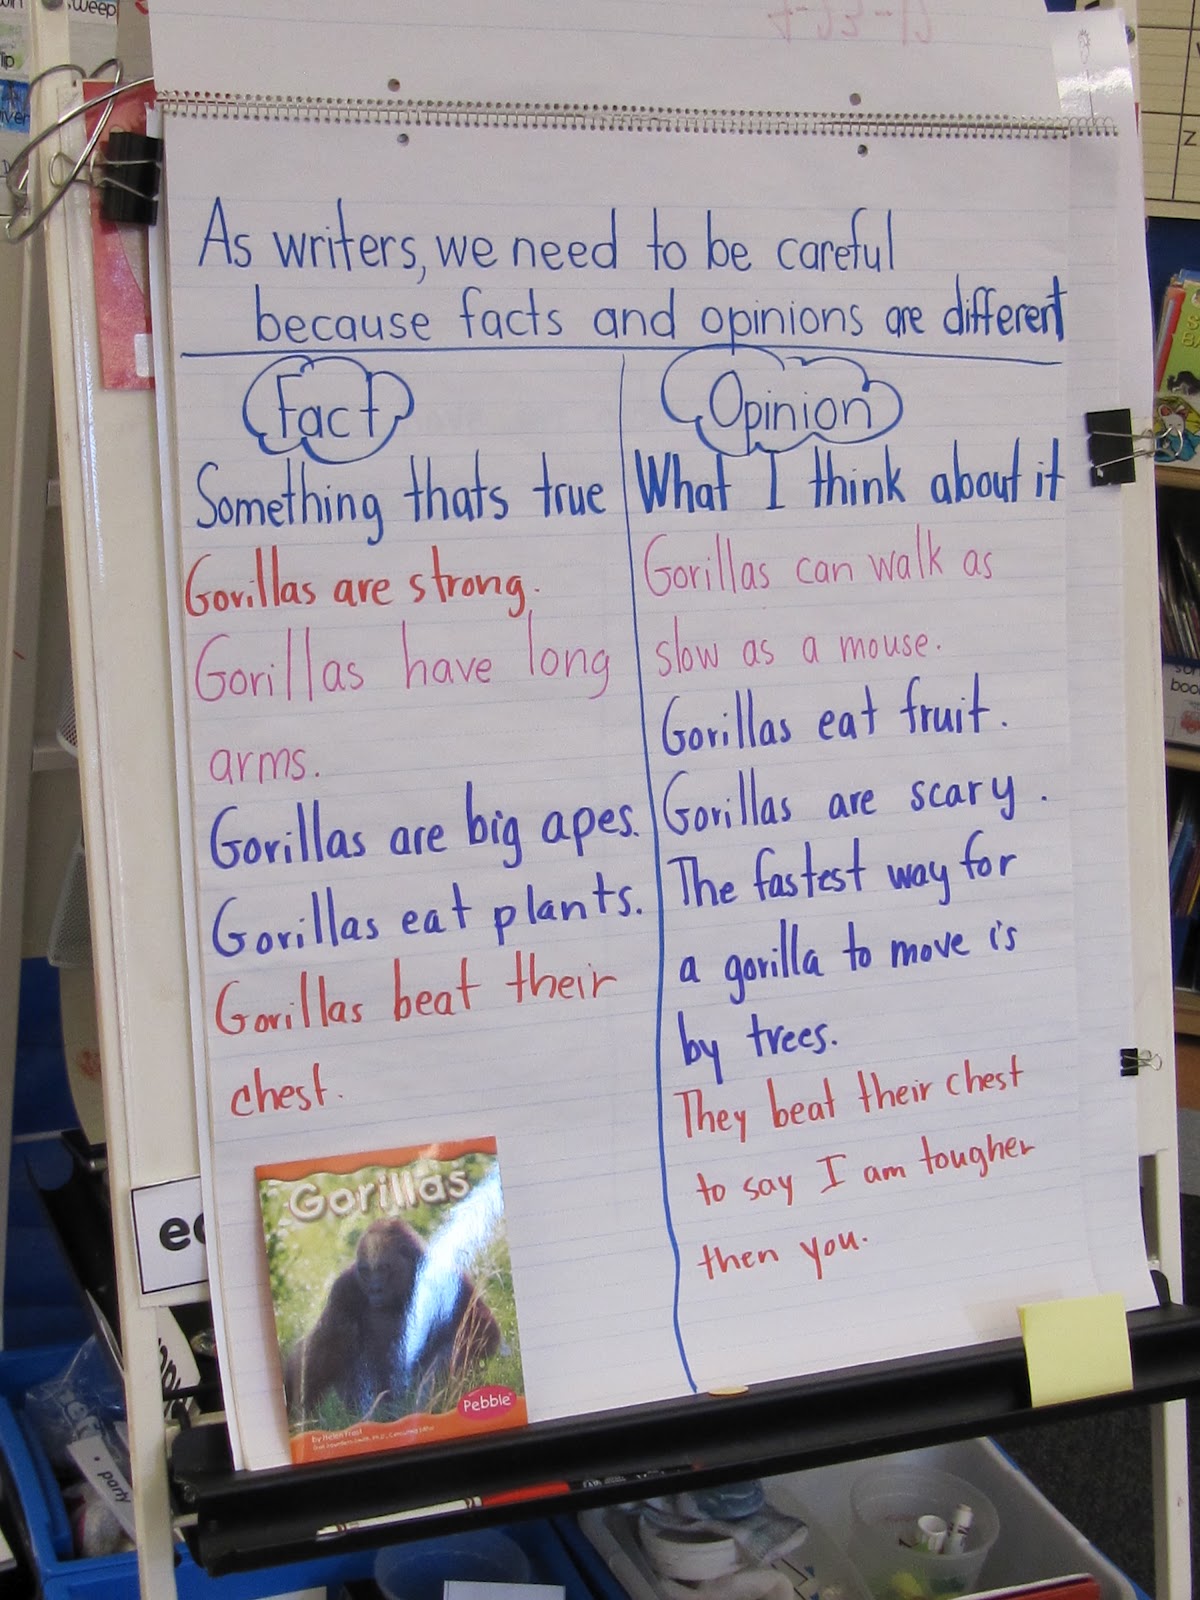 weep
As writers, we need to be careful
because facts and opinions are different
Fact
Something thats true
Gorillas are strong.
Gorillas have long
arms.
Gorillas are big apes.
Gorillas eat plants.
Gorillas beat their
chest.
Opinion
What I think about it
Gorillas can walk as
slow as a mouse.
Gorillas eat fruit.
Gorillas are scary.
The fastest way for
a gorilla to move is
by trees.
They beat their chest
to say I am tougher
then you.
Gorillas
Pebble
by Helen Frost
party
Z